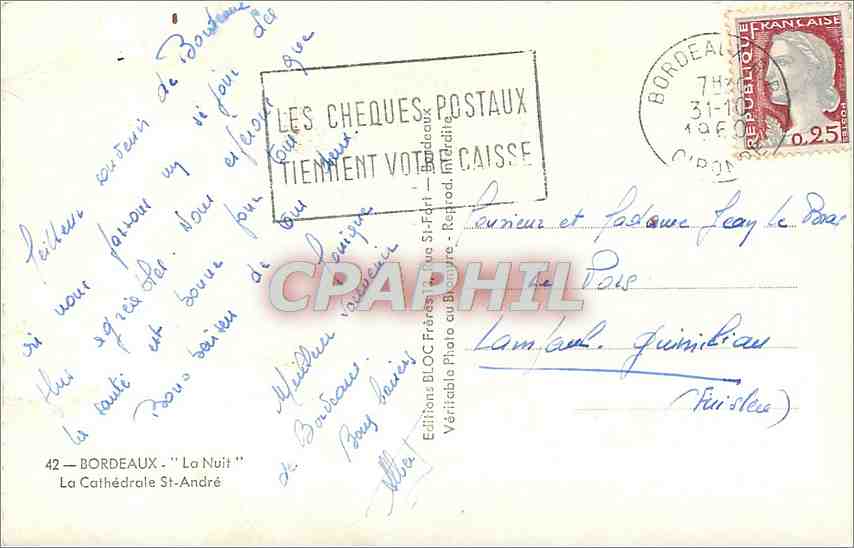 Meilleur souvenir de Bordeaux
où nous passons un séjour des
plus agréables. Nous espérons que
la santé est bonne pour tous
Bons baisers de tous deux.
Monique
Meilleur souvenir
de Bordeaux.
Bons baisers
Albert
42 — BORDEAUX - "La Nuit"
La Cathédrale St-André
LES CHEQUES POSTAUX
TIENNENT VOTRE CAISSE
Editions BLOC Frères 12, Rue St-Fort — Bordeaux
Véritable Photo au Bromure - Reprod. Interdite
CPAPHIL
BORDEAUX
31-10
196
GIRONDE
REPUBLIQUE FRANÇAISE
POSTES
0,25
Monsieur et Madame Jean Le Bras
Le
Lampaul-Guimiliau
(Finistère)